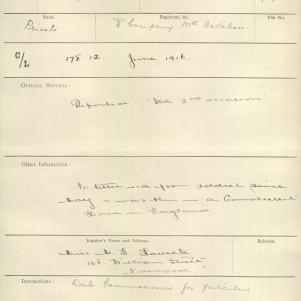 Rank.
Regiment, &c.
File No.
Private
Company 10th Battalion
C/L 178 12. June 1916.
OFFICIAL REPORTS:
Reported 2nd occasion
Other Information:
No letter from soldier since
May - was then in a Convalescent
Home in England
Inquirer's Name and Address.
Relation.
Miss
William Street
Norwood
Instructions: Write Commissioners for particulars